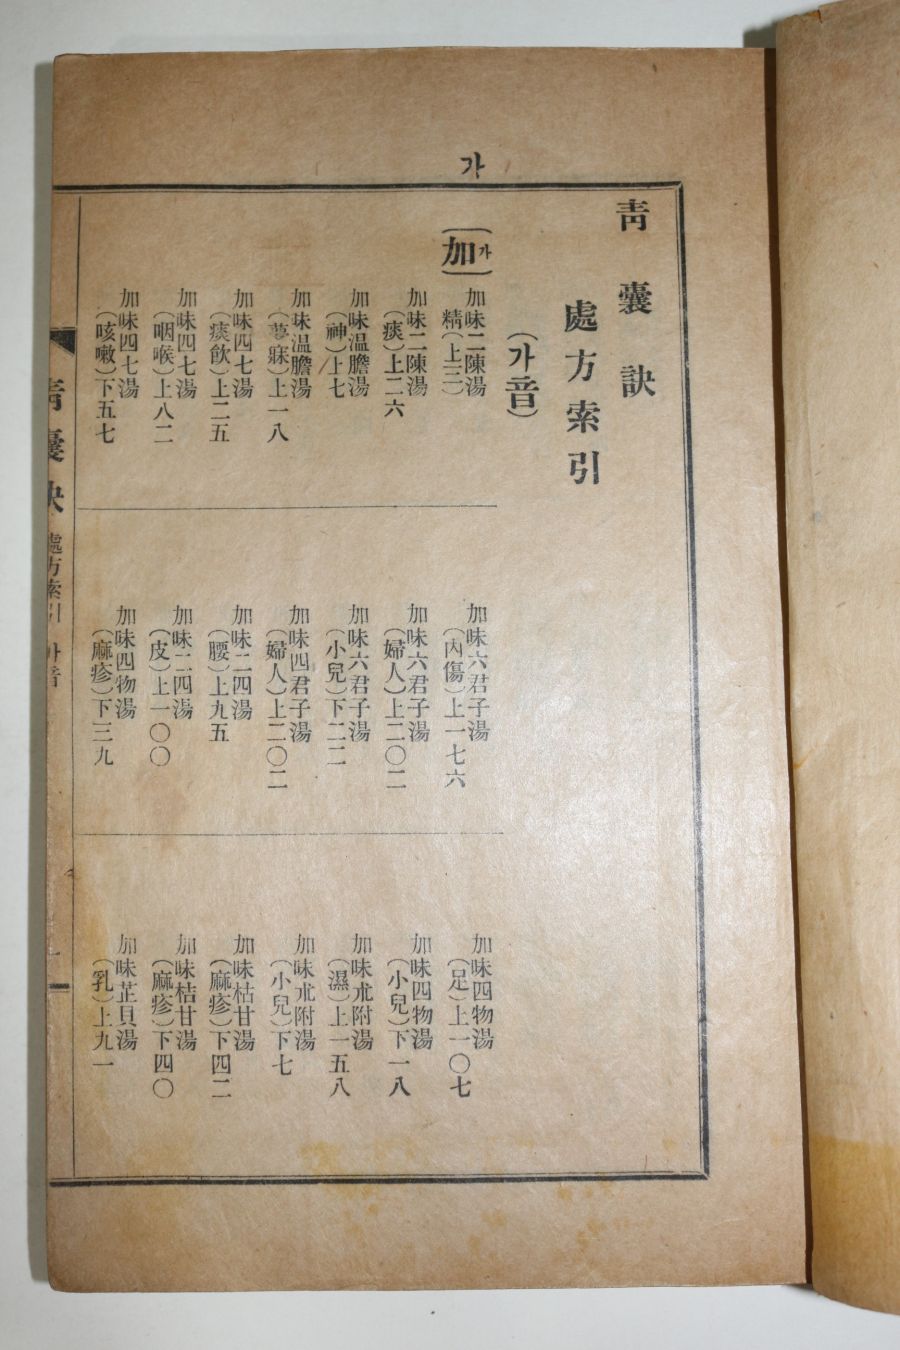 가
靑囊訣
處方索引
(가音)
(加가)
加味二陳湯
(精)上三
加味二陳湯
(痰)上二六
加味温膽湯
(神)上七
加味温膽湯
(夢寐)上一八
加味四七湯
(痰飮)上二五
加味四七湯
(咽喉)上八二
加味四七湯
(咳嗽)下五七
加味六君子湯
(內傷)上一七六
加味六君子湯
(婦人)上二〇二
加味六君子湯
(小兒)下二二
加味四君子湯
(婦人)上二〇二
加味二四湯
(腰)上九五
加味二四湯
(皮)上一〇〇
加味四物湯
(麻疹)下三九
加味四物湯
(足)上一〇七
加味四物湯
(小兒)下一八
加味朮附湯
(濕)上一五八
加味朮附湯
(小兒)下七
加味枯甘湯
(麻疹)下四二
加味桔甘湯
(麻疹)下四〇
加味芷貝湯
(乳)上九一
靑囊訣 處方索引 가音